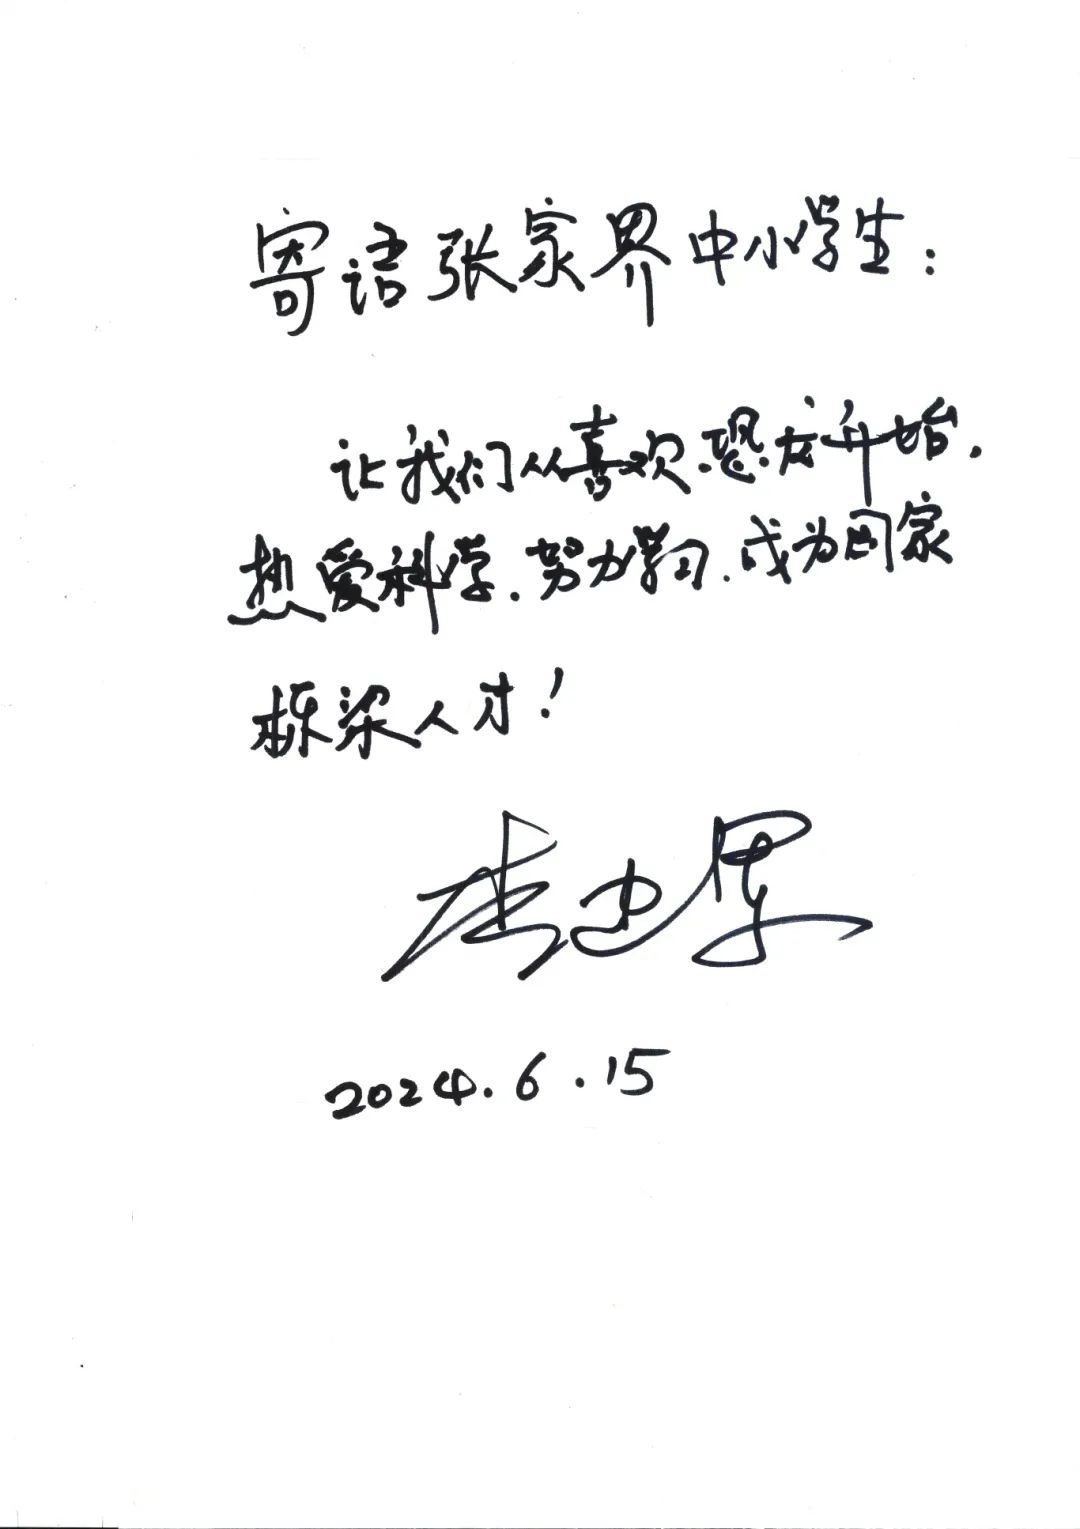 寄语张家界中小学生：
让我们从喜欢恐龙开始，
热爱科学，努力学习，成为国家
栋梁人才！
李建军
2024.6.15